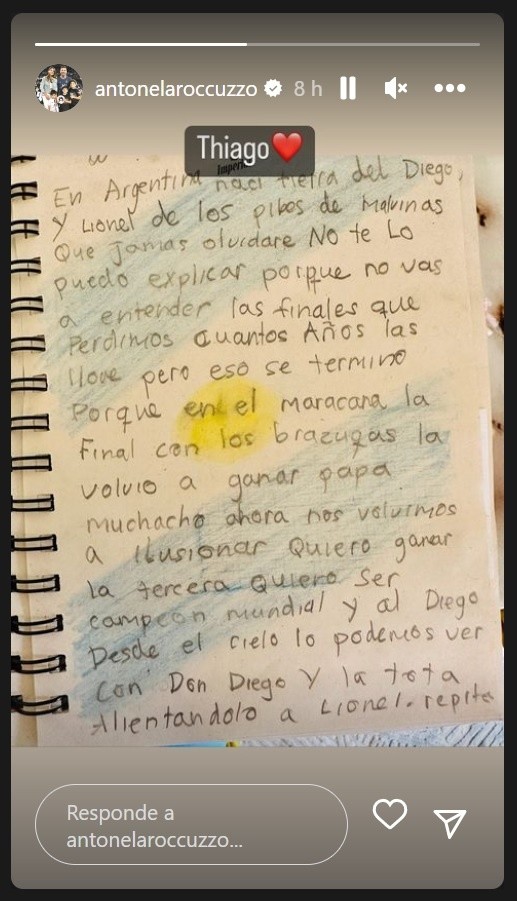 antonelaroccuzzo 8 h
Thiago❤️
En Argentina naci tierra del Diego,
Y Lionel de los pibes de Malvinas
Que jamas olvidare No te Lo
puedo explicar porque no vas
a entender las finales que
Perdimos Cuantos Años las
llore pero eso se termino
Porque en el maracana la
Final con los brazucas la
volvio a ganar papa
muchacho ahora nos volvimos
a Ilusionar Quiero ganar
la tercera Quiero Ser
campeon mundial y al Diego
Desde el cielo lo podemos ver
Con Don Diego Y la tota
Alientandolo a Lionel. repita
Responde a
antonelaroccuzzo...